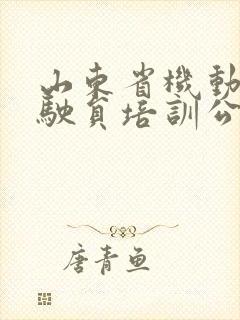 山东省機動
駛員培訓公
唐青魚